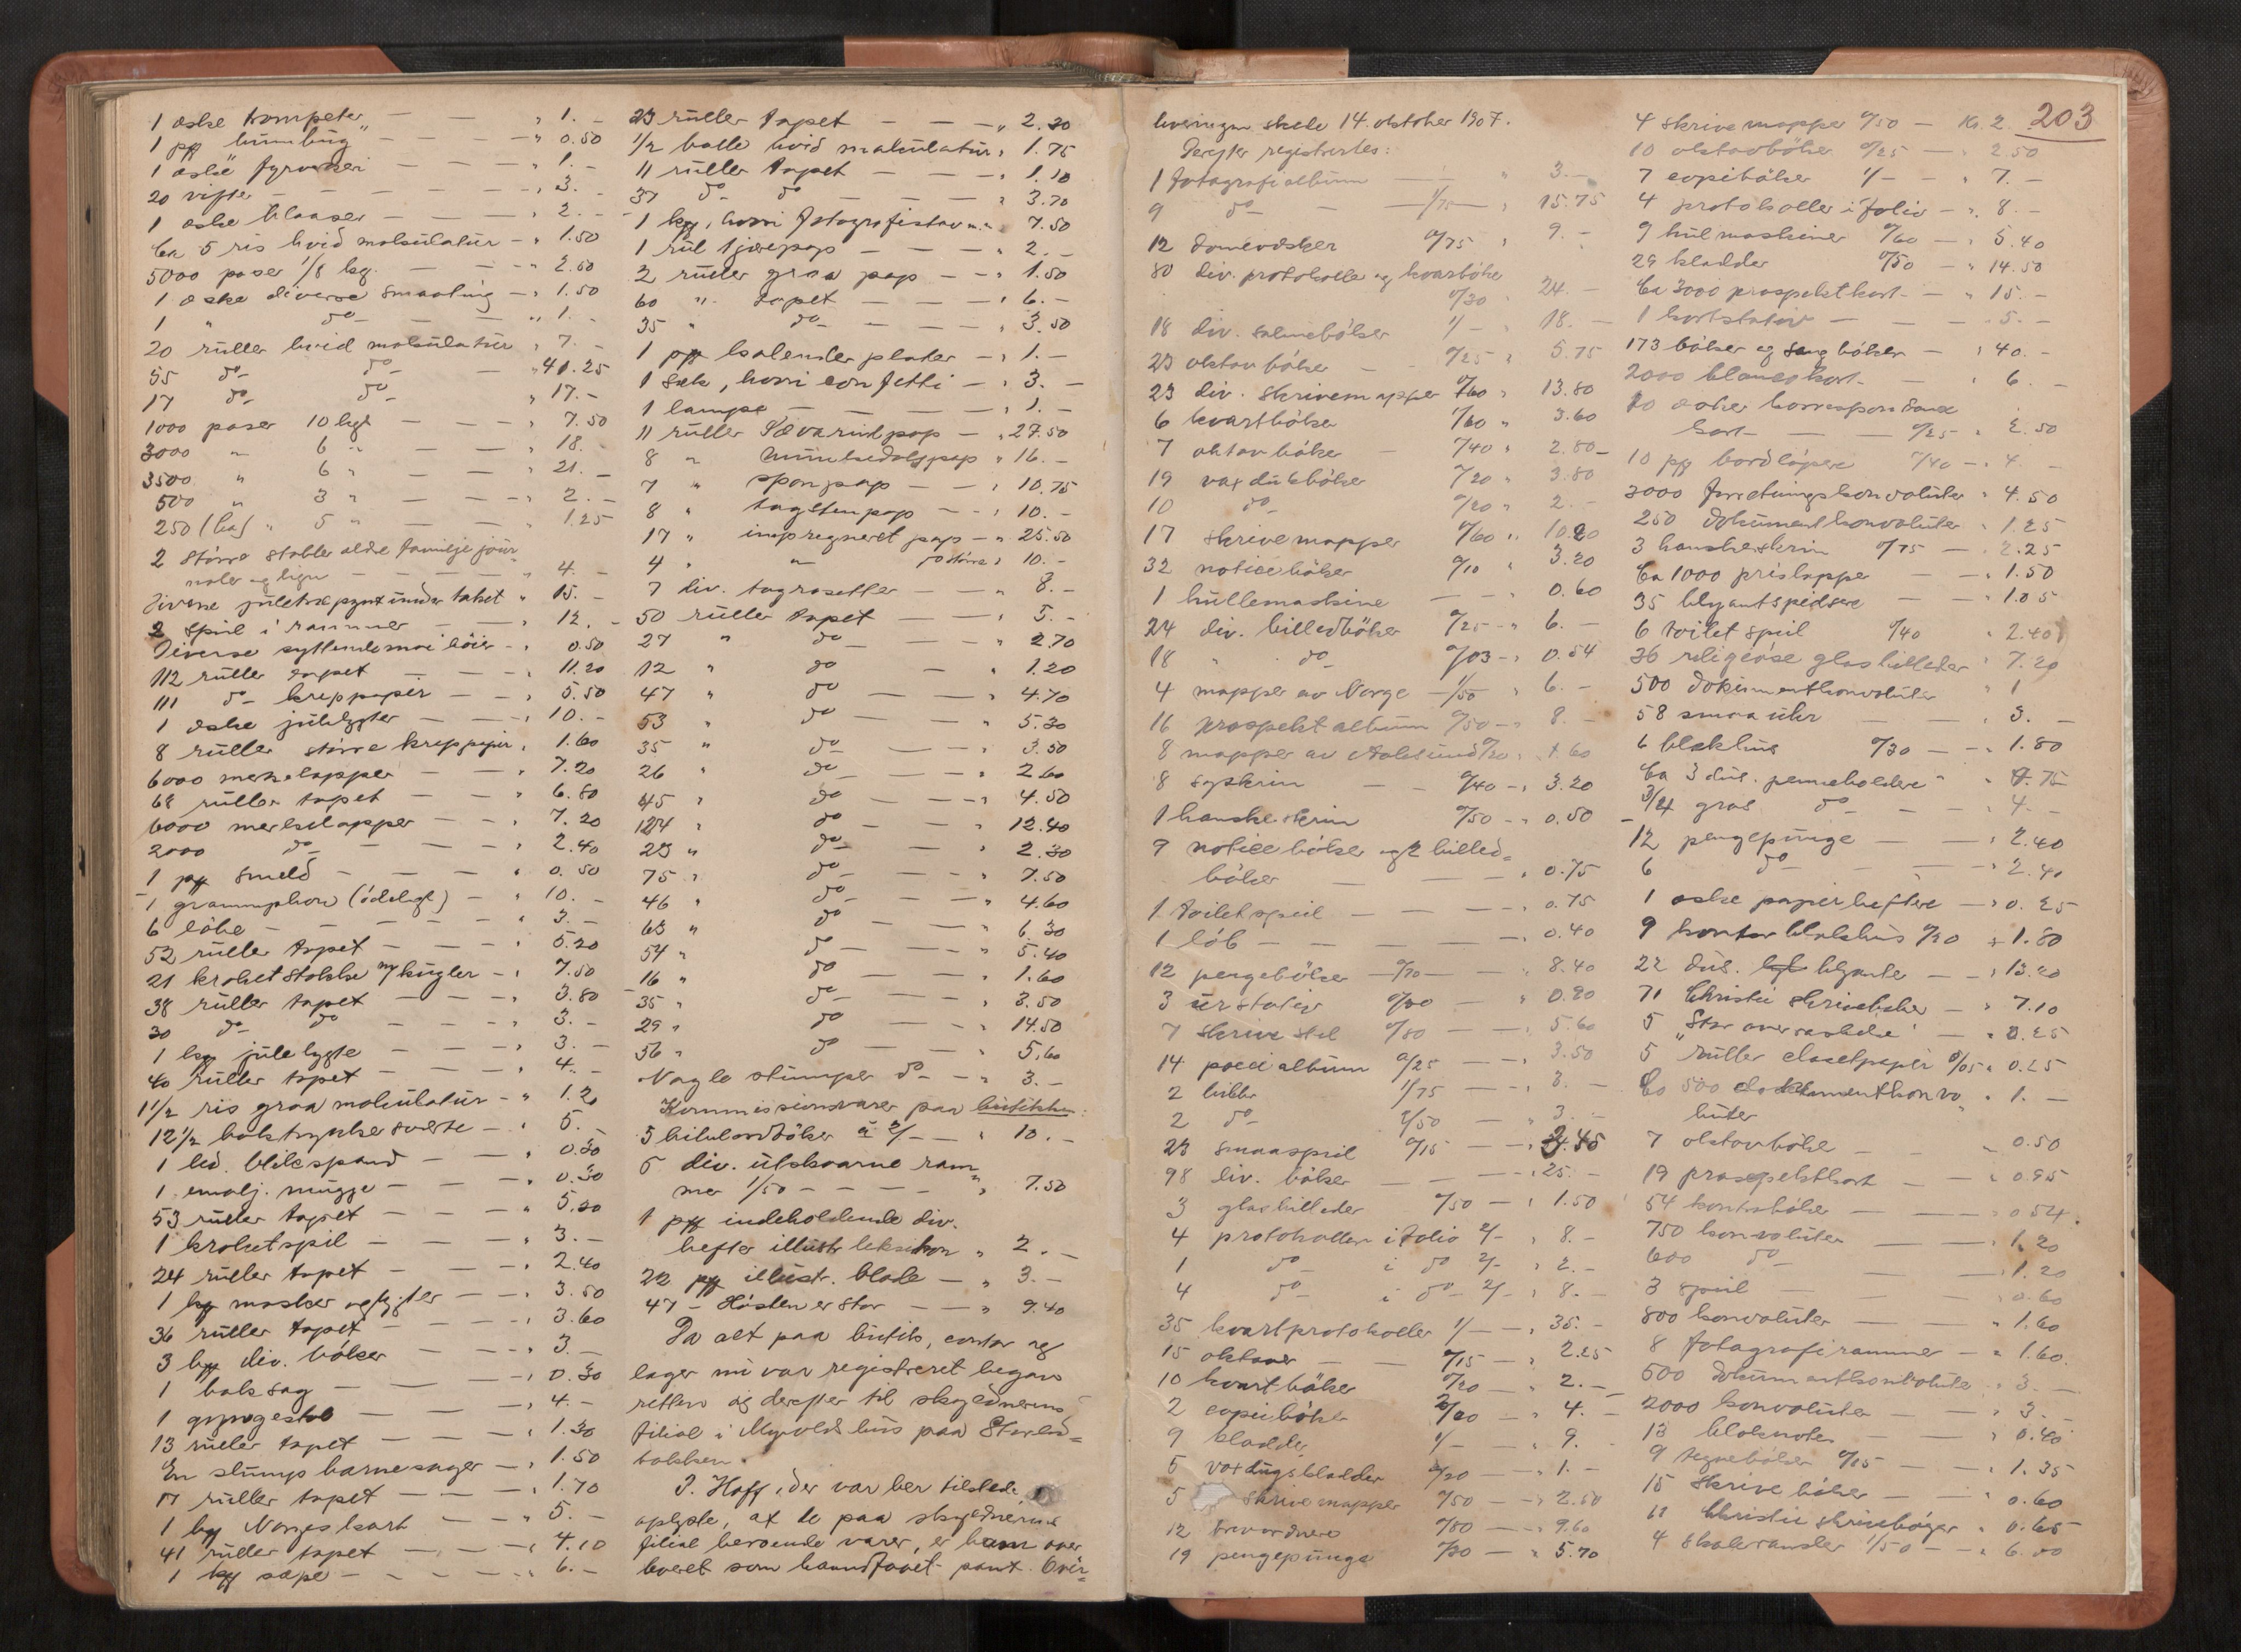 1 æske trompeter — — „ 1. -
1 pk humbug — — „ 0.50
1 æske fyrvrkeri — „ 1. -
20 vifter — — — „ 3. -
1 æske blaaser — — — „ 2. -
Ca 5 ris hvid makulatur — „ 1.50
5000 poser 1/8 kg. — — „ 2.50
1 æske diverse smaating — „ 1.50
1 „ do — — „ 1. -
20 ruller hvid makulatur „ 7. -
55 do do — „ 41.25
17 do do „ 17. -
1000 poser 10 kgs — — „ 7.50
3000 „ 6 „ — — „ 18. -
3500 „ 6 „ — — „ 21. -
500 „ 3 „ — — „ 2. -
250 (ca) „ 5 „ — — „ 1.25
2 större stabler ældre familje jour-
naler og lign — — — 4. -
Diverse juletræpynt under taket „ 15. -
2 speil i rammer — — „ 12. -
Diverse syttendemai böier — „ 0.50
112 ruller tapet — — „ 11.20
111 do kreppapir — — „ 5.50
1 æske julelygter — — „ 10. -
8 ruller större kreppapir „ 1.60
6000 merkelapper — — „ 7.20
68 ruller tapet — — „ 6.80
6000 merkelapper — — „ 7.20
2000 do — — — „ 2.40
1 pk smeld — — — „ 0.50
1 grammophon (ödelagt) — „ 10. -
6 löbe — — — „ 3. -
52 ruller tapet — — — „ 5.20
21 kroketstokke og kugler — „ 7.50
38 ruller tapet — — — „ 3.80
30 do do — — — „ 3. -
1 kg julelygte — — — „ 3. -
40 ruller tapet — — — „ 4. -
1 1/2 ris graa makulatur — „ 1.20
12 1/2 boktrykkersværte — „ 5. -
1 led. blikspand — — „ 0.30
1 emalj. mugge — — „ 0.30
53 ruller tapet — — — „ 5.30
1 kroketspil — — — „ 3. -
24 ruller tapet — — — „ 2.40
1 kg masker og lygter — — „ 3.50
36 ruller tapet — — — „ 3.60
3 kg div. böker — — — „ 3. -
1 baksag — — — „ 0.30
1 gyngestol — — — „ 4. -
13 ruller tapet — — — „ 1.30
En slump barnesager — „ 1.50
17 ruller tapet — — — „ 1.70
1 kg Norges kart — — „ 5. -
41 ruller tapet — — — „ 4.10
1 kg sæpe — — — — „ 6. -
23 ruller tapet — — — „ 2.30
1/2 balle hvid makulatur „ 1.75
11 ruller tapet — — — „ 1.10
37 do do — — „ 3.70
1 kg, hvori fotografistativ m.m. 7.50
1 rul tjærepap — — — „ 2. -
2 ruller graa pap — — „ 1.50
60 „ tapet — — — „ 6. -
35 „ do — — — „ 3.50
1 pk kalenderplater — „ 1. -
1 sæk, hvori confetti — „ 3. -
1 lampe — — — „ 1. -
11 ruller — „ 27.50
8 „ „ 16. -
7 „ sponpap — — „ 10.75
8 „ tagstenpap — — „ 10. -
17 „ impregneret pap — „ 25.50
4 „ „ större „ 10. -
7 div. tagrosetter — — „ 8. -
50 ruller tapet — — — „ 5. -
27 „ do — — „ 2.70
12 „ do — „ 1.20
47 „ do — — „ 4.70
53 „ do — — „ 5.30
35 „ do — — „ 3.50
26 „ do — — „ 2.60
45 „ do — — „ 4.50
124 „ do — — „ 12.40
23 „ do — — „ 2.30
75 „ do — — „ 7.50
46 „ do — — „ 4.60
63 „ do — — „ 6.30
54 „ do — — „ 5.40
16 „ do — — „ 1.60
35 „ do — — „ 3.50
29 „ do — — „ 14.50
56 „ do — — „ 5.60
Nogle stumper do — — „ 3. -
Kommissionsvarer paa butikken:
5 bibelordböker à 2/— „ 10. -
5 div. utskaarne ram„
mer 1/50 — — — — „ 7.50
1 pk indeholdende div.
hefter illustr leksikon „ 2. -
22 pk illustr. blade — „ 3. -
47 — Hösten er stor — — „ 9.40
Da alt paa butik, contor og
lager nu var registreret begav
retten sig derefter til skyldnerens
filial i Myvolds hus paa Storlod=
bakken.
P. Hoff, der var ber tilstede
oplyste, at de paa skyldnerens
filial beroende varer, er ham over
leveret som haandfaaet pant. Over=
leveringen skede 14. oktober 1907.
Derefter registrertes:
1 fotografialbum — — „ 3. -
9 do — — 1/75 — „ 15.75
12 domenæsker 0/75 „ 9. -
80 div. protokoller og kvartböker
0/30 „ 24. -
18 div. salmeböker 1/— „ 18. -
23 oktavböker — 0/25 „ 5.75
23 div. skrivemapper 0/60 „ 13.80
6 kvartböker 0/60 „ 3.60
7 oktavböker — 0/40 „ 2.80
19 vaxdukböker 0/20 „ 3.80
10 do 0/20 „ 2. -
17 skrivemapper 0/60 „ 10.20
32 noticeböker 0/10 „ 3.20
1 hullemaskine — — „ 0.60
24 div. billedböker 0/25 — „ 6. -
18 „ do 0/03 — „ 0.54
4 mapper av Norge — 1/50 „ 6. -
16 prospektalbum 0/50 — „ 8. -
8 mapper av Aalesund 0/20 „ 1.60
8 syskrin — — 0/40 — „ 3.20
1 hanskeskrin 0/50 — „ 0.50
9 noticeböker og 2 billed=
böker — — — „ 0.75
1 toiletspeil — — — „ 0.75
1 löb — — — — „ 0.40
12 pengeböker — 0/70 — — „ 8.40
3 urstativ 0/30 — „ 0.90
7 skrivestel 0/80 — — „ 5.60
14 poesialbum 0/25 — — „ 3.50
2 bibler 1/75 — — „ 3. -
2 do 1/50 — „ 3. -
23 smaaspeil 0/15 — — „ 3.45
98 div. böker — — — „ 25. -
3 glasbilleder 0/50 — „ 1.50
4 protokoller i folio 2/— „ 8. -
1 do i do 2/— „ 2. -
4 do i do 2/— „ 8. -
35 kvartprotokoller 1/— — „ 35. -
15 oktaver — — 0/15 — „ 2.25
10 kvartböker 0/20 — „ 2. -
2 copieböker 2/00 — „ 4. -
9 kladder 1/— — „ 9. -
5 voxdugskladder 0/20 — „ 1. -
5 skrivemapper 0/50 — „ 2.50
12 brevordnere 0/80 — „ 9.60
19 pengepunge 0/30 — „ 5.70
203
4 skrivemapper 0/50 — Kr. 2.
10 oktavböker 0/25 — „ 2.50
7 copiböker 1/— — „ 7. -
4 protokoller i folio — „ 8. -
9 hulmaskiner 0/60 — „ 5.40
29 kladder 0/50 — „ 14.50
Ca 3000 prospektkort — — „ 15. -
1 kortstativ — — — 5. -
173 böker og sangböker — „ 40. -
2000 blancokort — — „ 6. -
10 æsker korrespondance
kort — — 0/25 „ 2.50
10 pk bordlöpere 0/40 — „ 4. -
3000 forretningskonvolutter „ 4.50
250 dokumentkonvolutter „ 1.25
3 hanskeskrin 0/75 — „ 2.25
Ca 1000 prislapper — — „ 1.50
35 blyantspidsere — — „ 1.05
6 toiletspeil 0/40 „ 2.40
36 religiöse glasbilleder „ 7.20
500 dokumentkonvolutter „ 1
58 smaa uhr — — „ 3. -
6 blækhus 0/30 — — „ 1.80
Ca 3 dus. penneholdere „ „ 0.75
3/4 gros do — — „ 4. -
12 pengepunge — — „ 2.40
6 do — — „ 2.40
1 æske papirheftere — „ 0.25
9 kontorblækhus 0/20 „ 1.80
22 dus. blyanter — — „ 13.20
71 Christie skriveböker — „ 7.10
5 „Stor overraskelse" — „ 0.25
5 ruller closetpapir 0/05 „ 0.25
Ca 500 dokumentkonvo„ „ 1. -
lutter
7 oktavböke — — 0.50
19 prospektkort — — „ 0.95
54 kontraböker — — „ 0.54
750 konvolutter — — „ 1.20
600 do — — „ 1.20
3 speil — — „ 0.60
800 konvolutter — — „ 1.60
8 fotografirammer — „ 1.60
500 dokumentkonvolutte „ 3. -
2000 konvolutter — — „ 3. -
13 bloknotes — — „ 0.40
9 tegneböker 0/15 — — „ 1.35
15 skriveböker — — „ 0.60
11 Christie skriveböger „ 0.65
4 skoleransler 1/50 — — „ 6.00